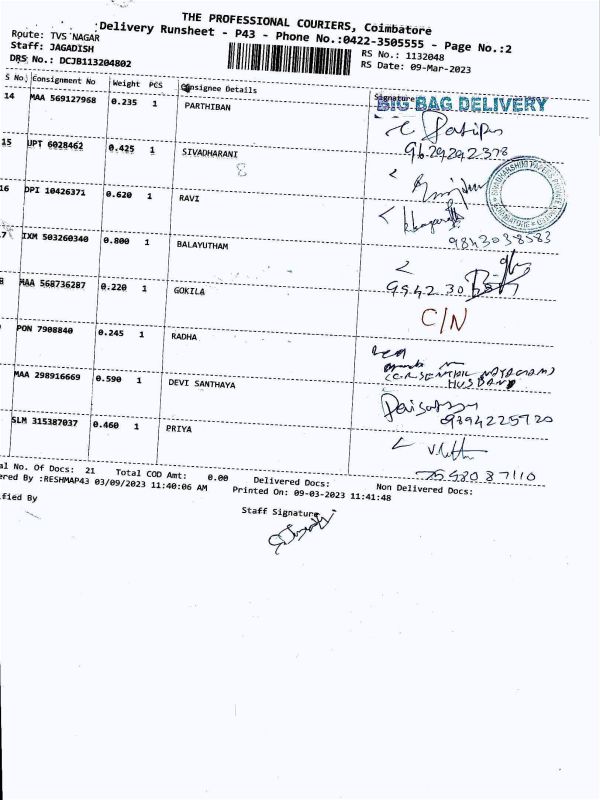 THE PROFESSIONAL COURIERS, Coimbatore
Delivery Runsheet - P43 - Phone No.:0422-3505555 - Page No.:2
Route: TVS NAGAR
Staff: JAGADISH
DRS No.: DCJB113204802
RS No.: 1132048
RS Date: 09-Mar-2023
S No. Consignment No Weight PCS Consignee Details Signature
BIG BAG DELIVERY
14 MAA 569127968 0.235 1 PARTHIBAN
9629292378
15 UPT 6028462 0.425 1 SIVADHARANI
16 DPI 10426371 0.620 1 RAVI
9843038583
7 IXM 503260340 0.800 1 BALAYUTHAM
8 MAA 568736287 0.220 1 GOKILA C/N
PON 7908840 0.245 1 RADHA
HUSBAND
MAA 298916669 0.590 1 DEVI SANTHAYA
09394225720
SLM 315387037 0.460 1 PRIYA
al No. Of Docs: 21 Total COD Amt: 0.00 Delivered Docs: Non Delivered Docs:
ered By :RESHMAP43 03/09/2023 11:40:06 AM Printed On: 09-03-2023 11:41:48
ified By Staff Signature